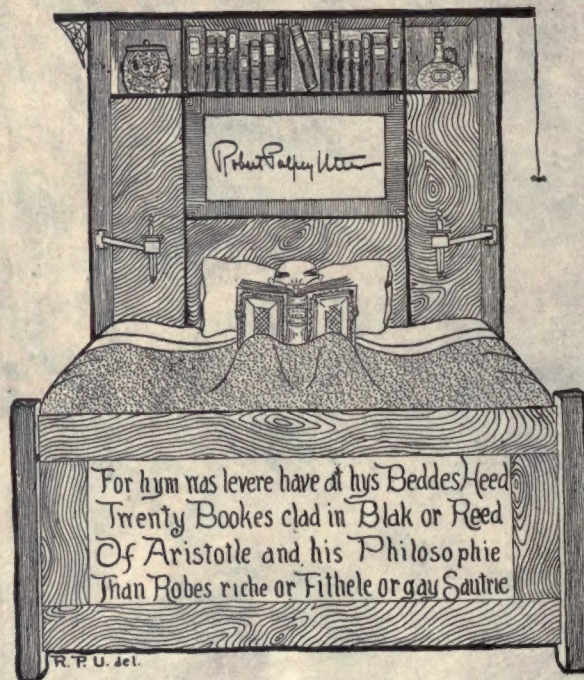 Robert Palfrey Utter
For hym was levere have at hys Beddes Heed
Twenty Bookes clad in Blak or Reed
Of Aristotle and his Philosophie
Than Robes riche or Fithele or gay Sautrie
R. P. U. del.